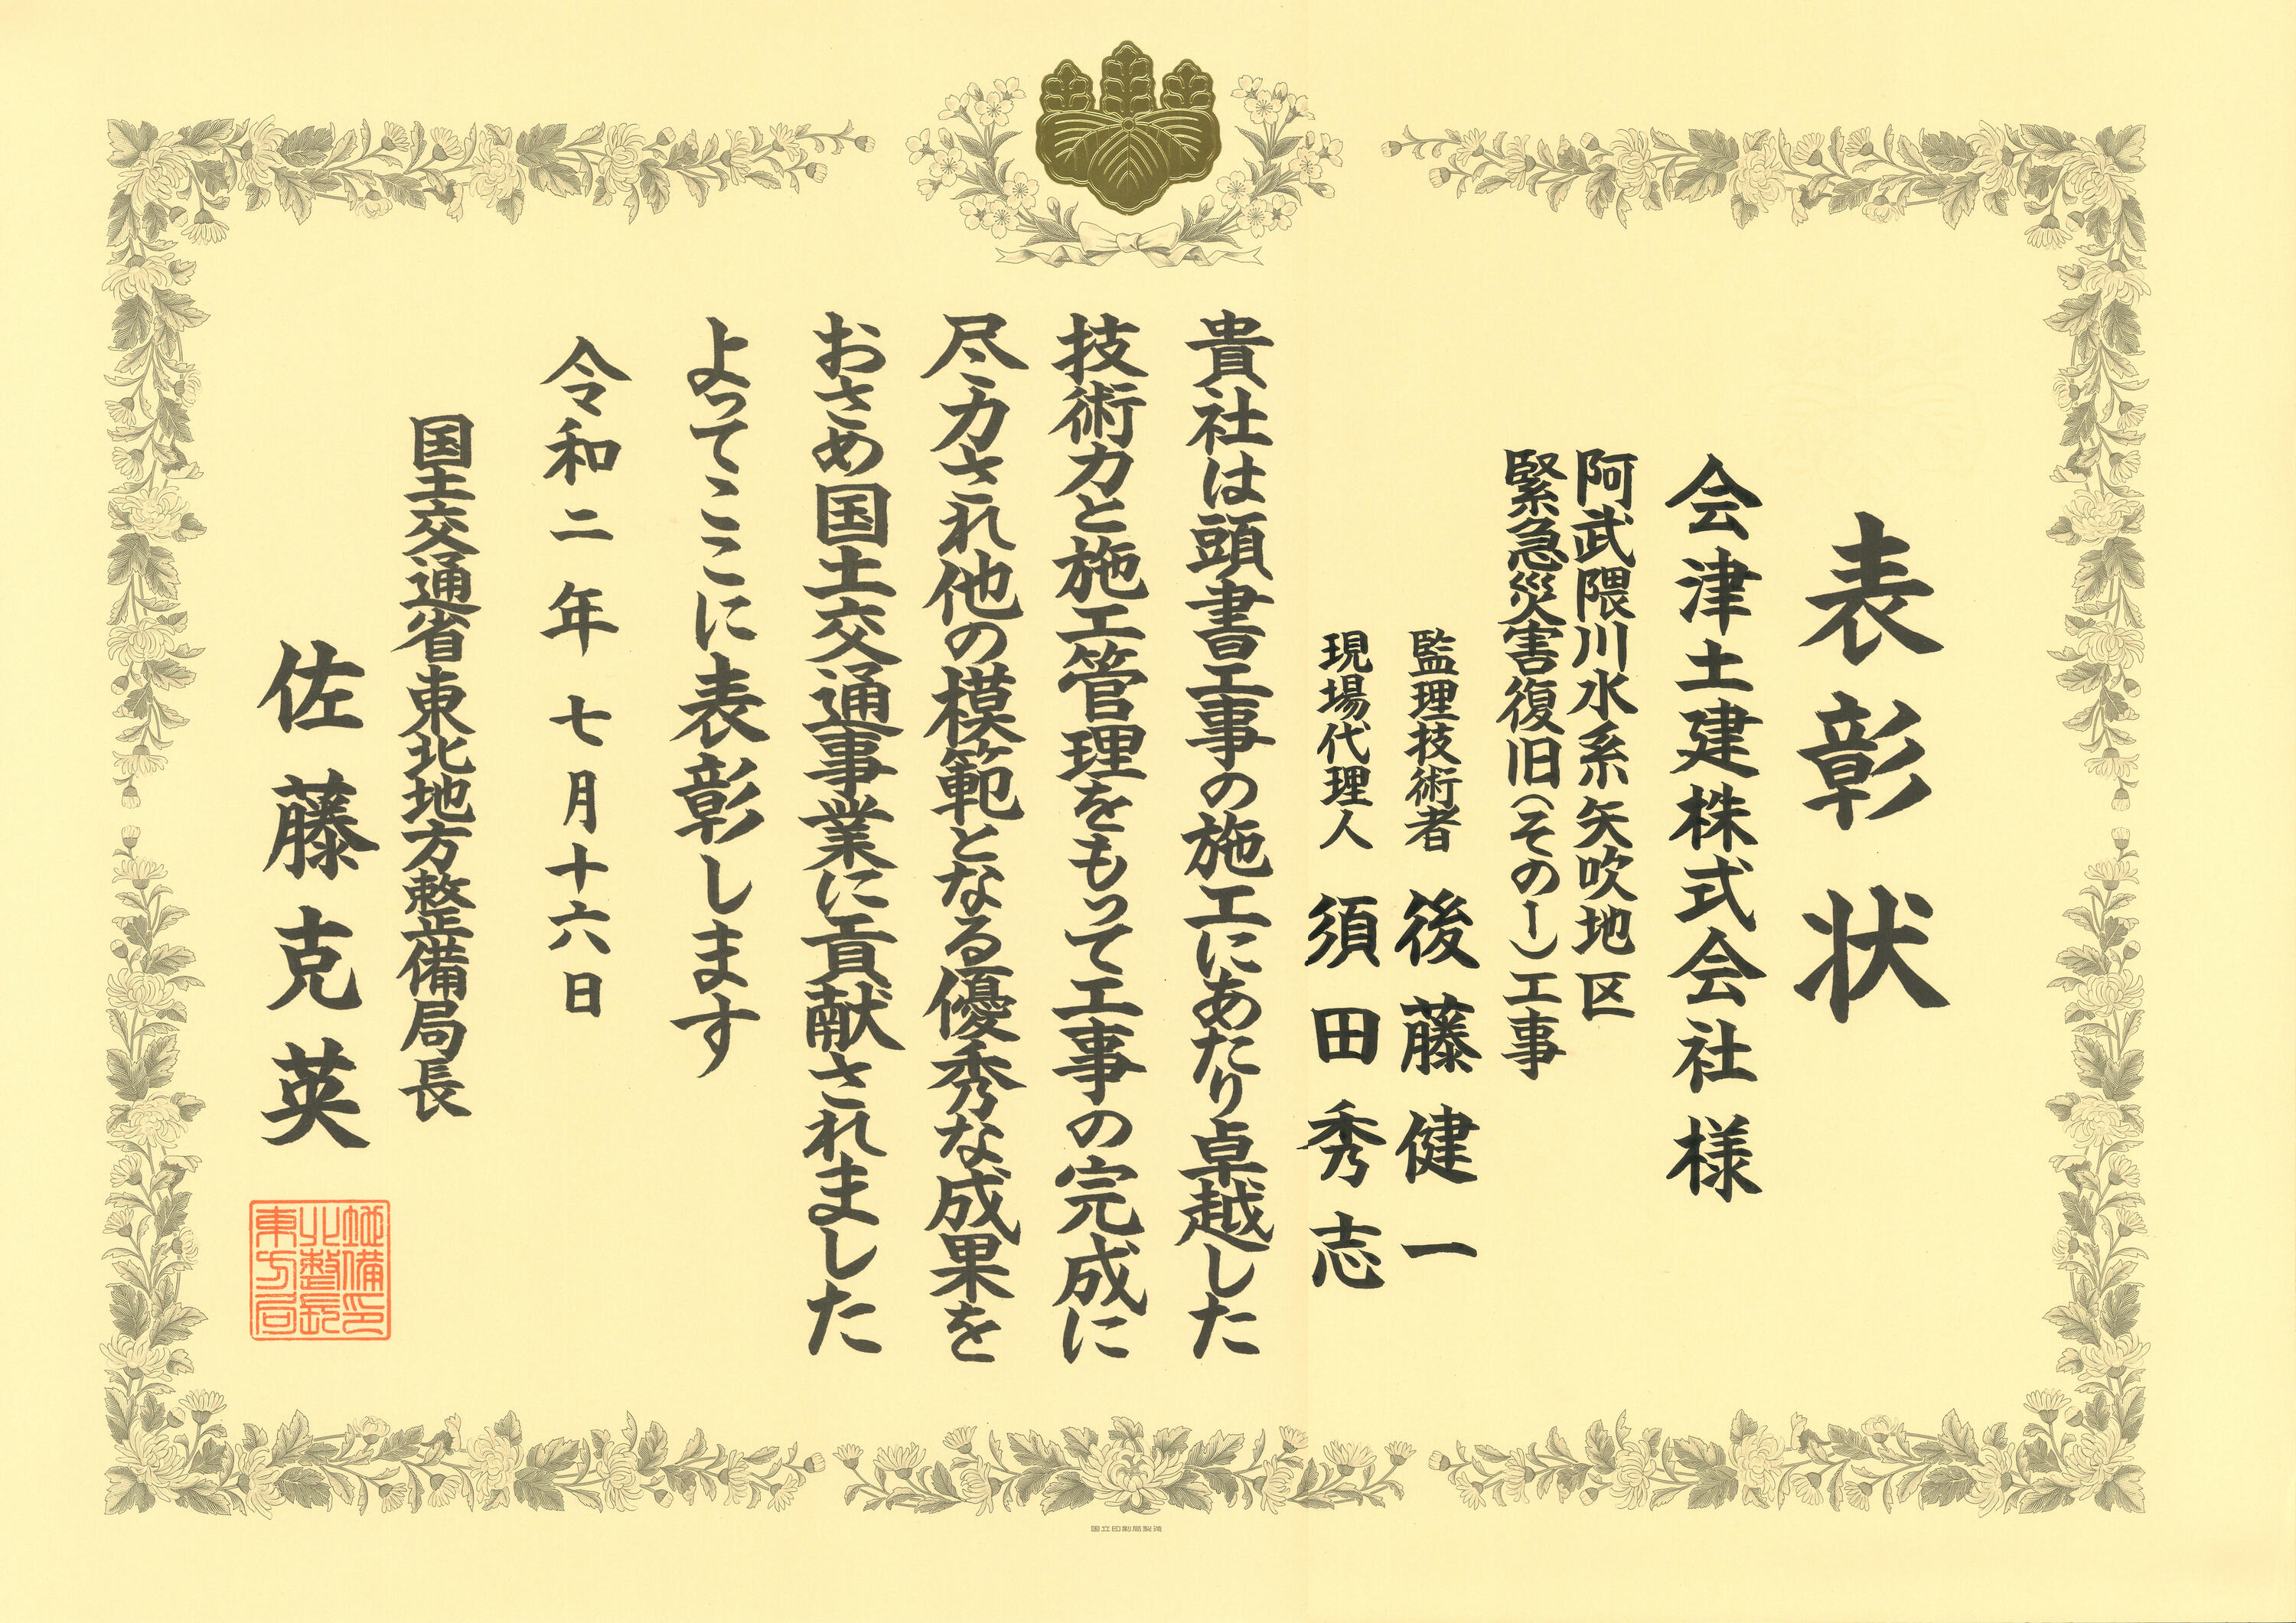 表彰状
会津土建株式会社様
阿武隈川水系矢吹地区
緊急災害復旧(その1)工事
監理技術者 後藤健一
現場代理人 須田秀志
貴社は頭書工事の施工にあたり卓越した
技術力と施工管理をもって工事の完成に
尽力され他の模範となる優秀な成果を
おさめ国土交通事業に貢献されました
よってここに表彰します
令和二年七月十六日
国土交通省東北地方整備局長
佐藤克英
国立印刷局製造